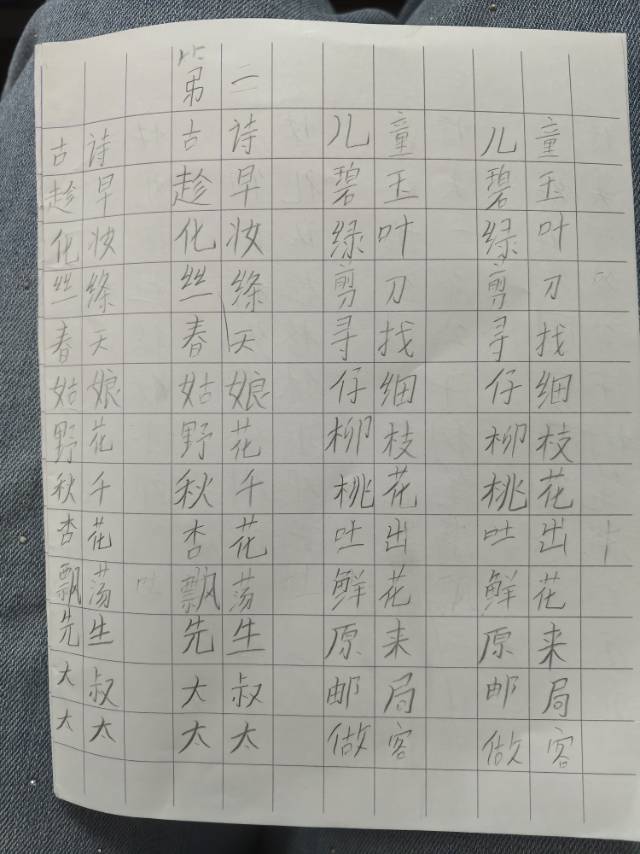 第二
古诗 古诗 儿童 儿童
趁早 趁早 碧玉 碧玉
化妆 化妆 绿叶 绿叶
丝绦 丝绦 剪刀 剪刀
春天 春天 寻找 寻找
姑娘 姑娘 仔细 仔细
野花 野花 柳枝 柳枝
秋千 秋千 桃花 桃花
杏花 杏花 吐出 吐出
飘荡 飘荡 鲜花 鲜花
先生 先生 原来 原来
大叔 大叔 邮局 邮局
太太 太太 做客 做客